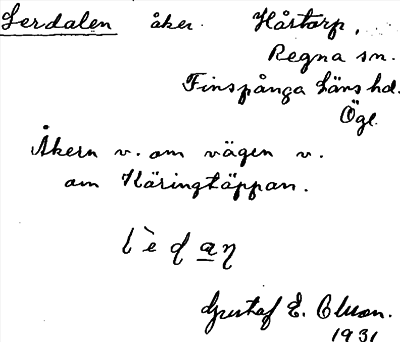 Lerdalen åker. Håstorp,
Regna sn.
Finspånga läns hd.
Ögl.
Åkern v. om vägen v.
om Käringtäppan.
Gustaf E. Olson.
1931